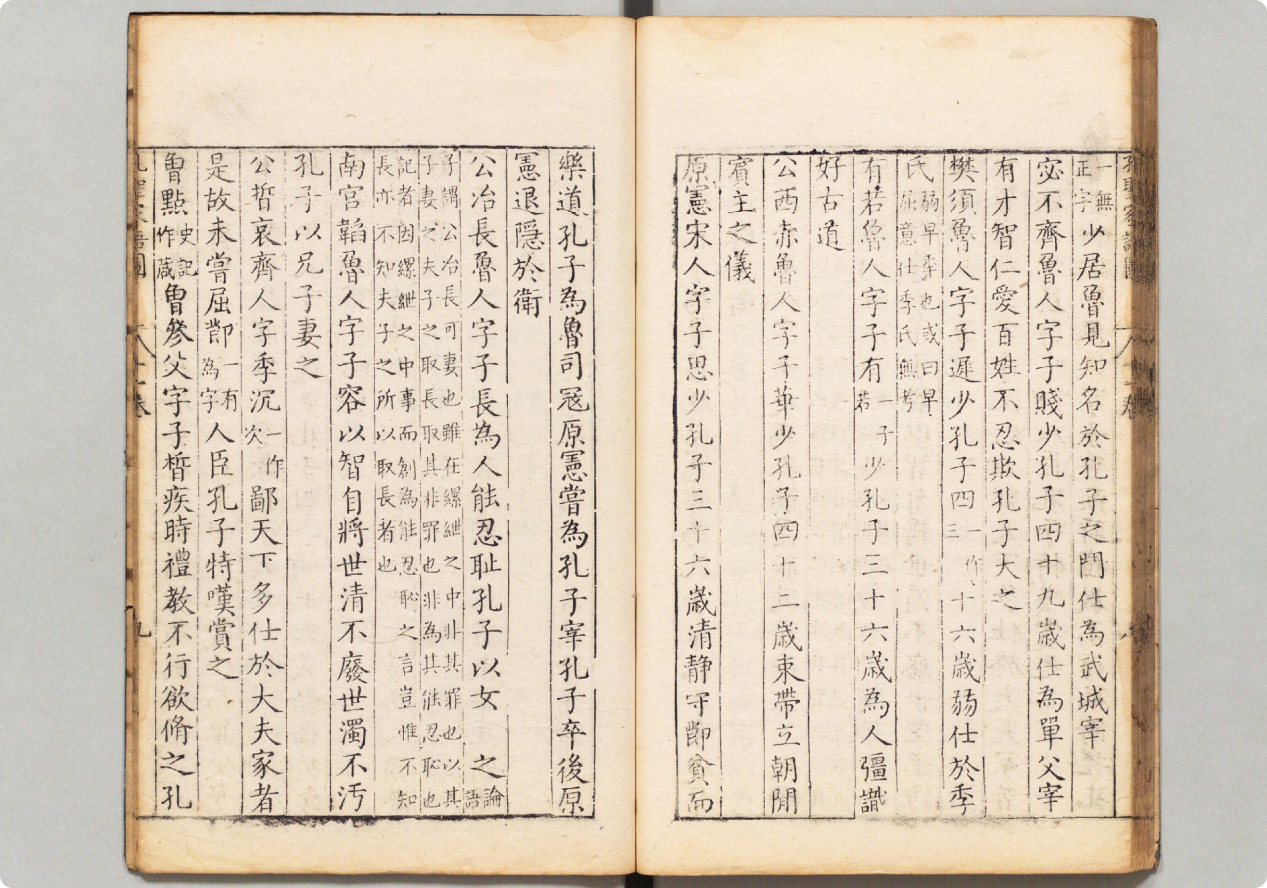 一無正字少居魯見知名於孔子之門仕為武城宰
宓不齊魯人字子賤少孔子四十九歲仕為單父宰
有才智仁愛百姓不忍欺孔子大之
樊須魯人字子遲少孔子四一作三十六歲弱仕於季
氏弱早季也或曰早屈意仕季氏無考
有若魯人字子有一子若少孔子三十六歲為人彊識
好古道
公西赤魯人字子華少孔子四十二歲束帶立朝閒
賓主之儀
原憲宋人字子思少孔子三十六歲清靜守節貧而
樂道孔子為魯司冦原憲嘗為孔子宰孔子卒後原
憲退隱於衛
公冶長魯人字子長為人能忍耻孔子以女之論語
子謂公冶長可妻也雖在縲絏之中非其罪也以其
子妻之夫子之取長取其非罪也非為其能忍恥也
記者因縲絏之中事而創為能忍恥之言豈惟不知
長亦不知夫子之所以取長者也
南宮韜魯人字子容以智自將世清不廢世濁不汚
孔子以兄子妻之
公晳哀齊人字季沉一作次鄙天下多仕於大夫家者
是故未嘗屈節一有為字人臣孔子特嘆賞之
曾點史記作蒧曾參父字子晳疾時禮教不行欲脩之孔
九